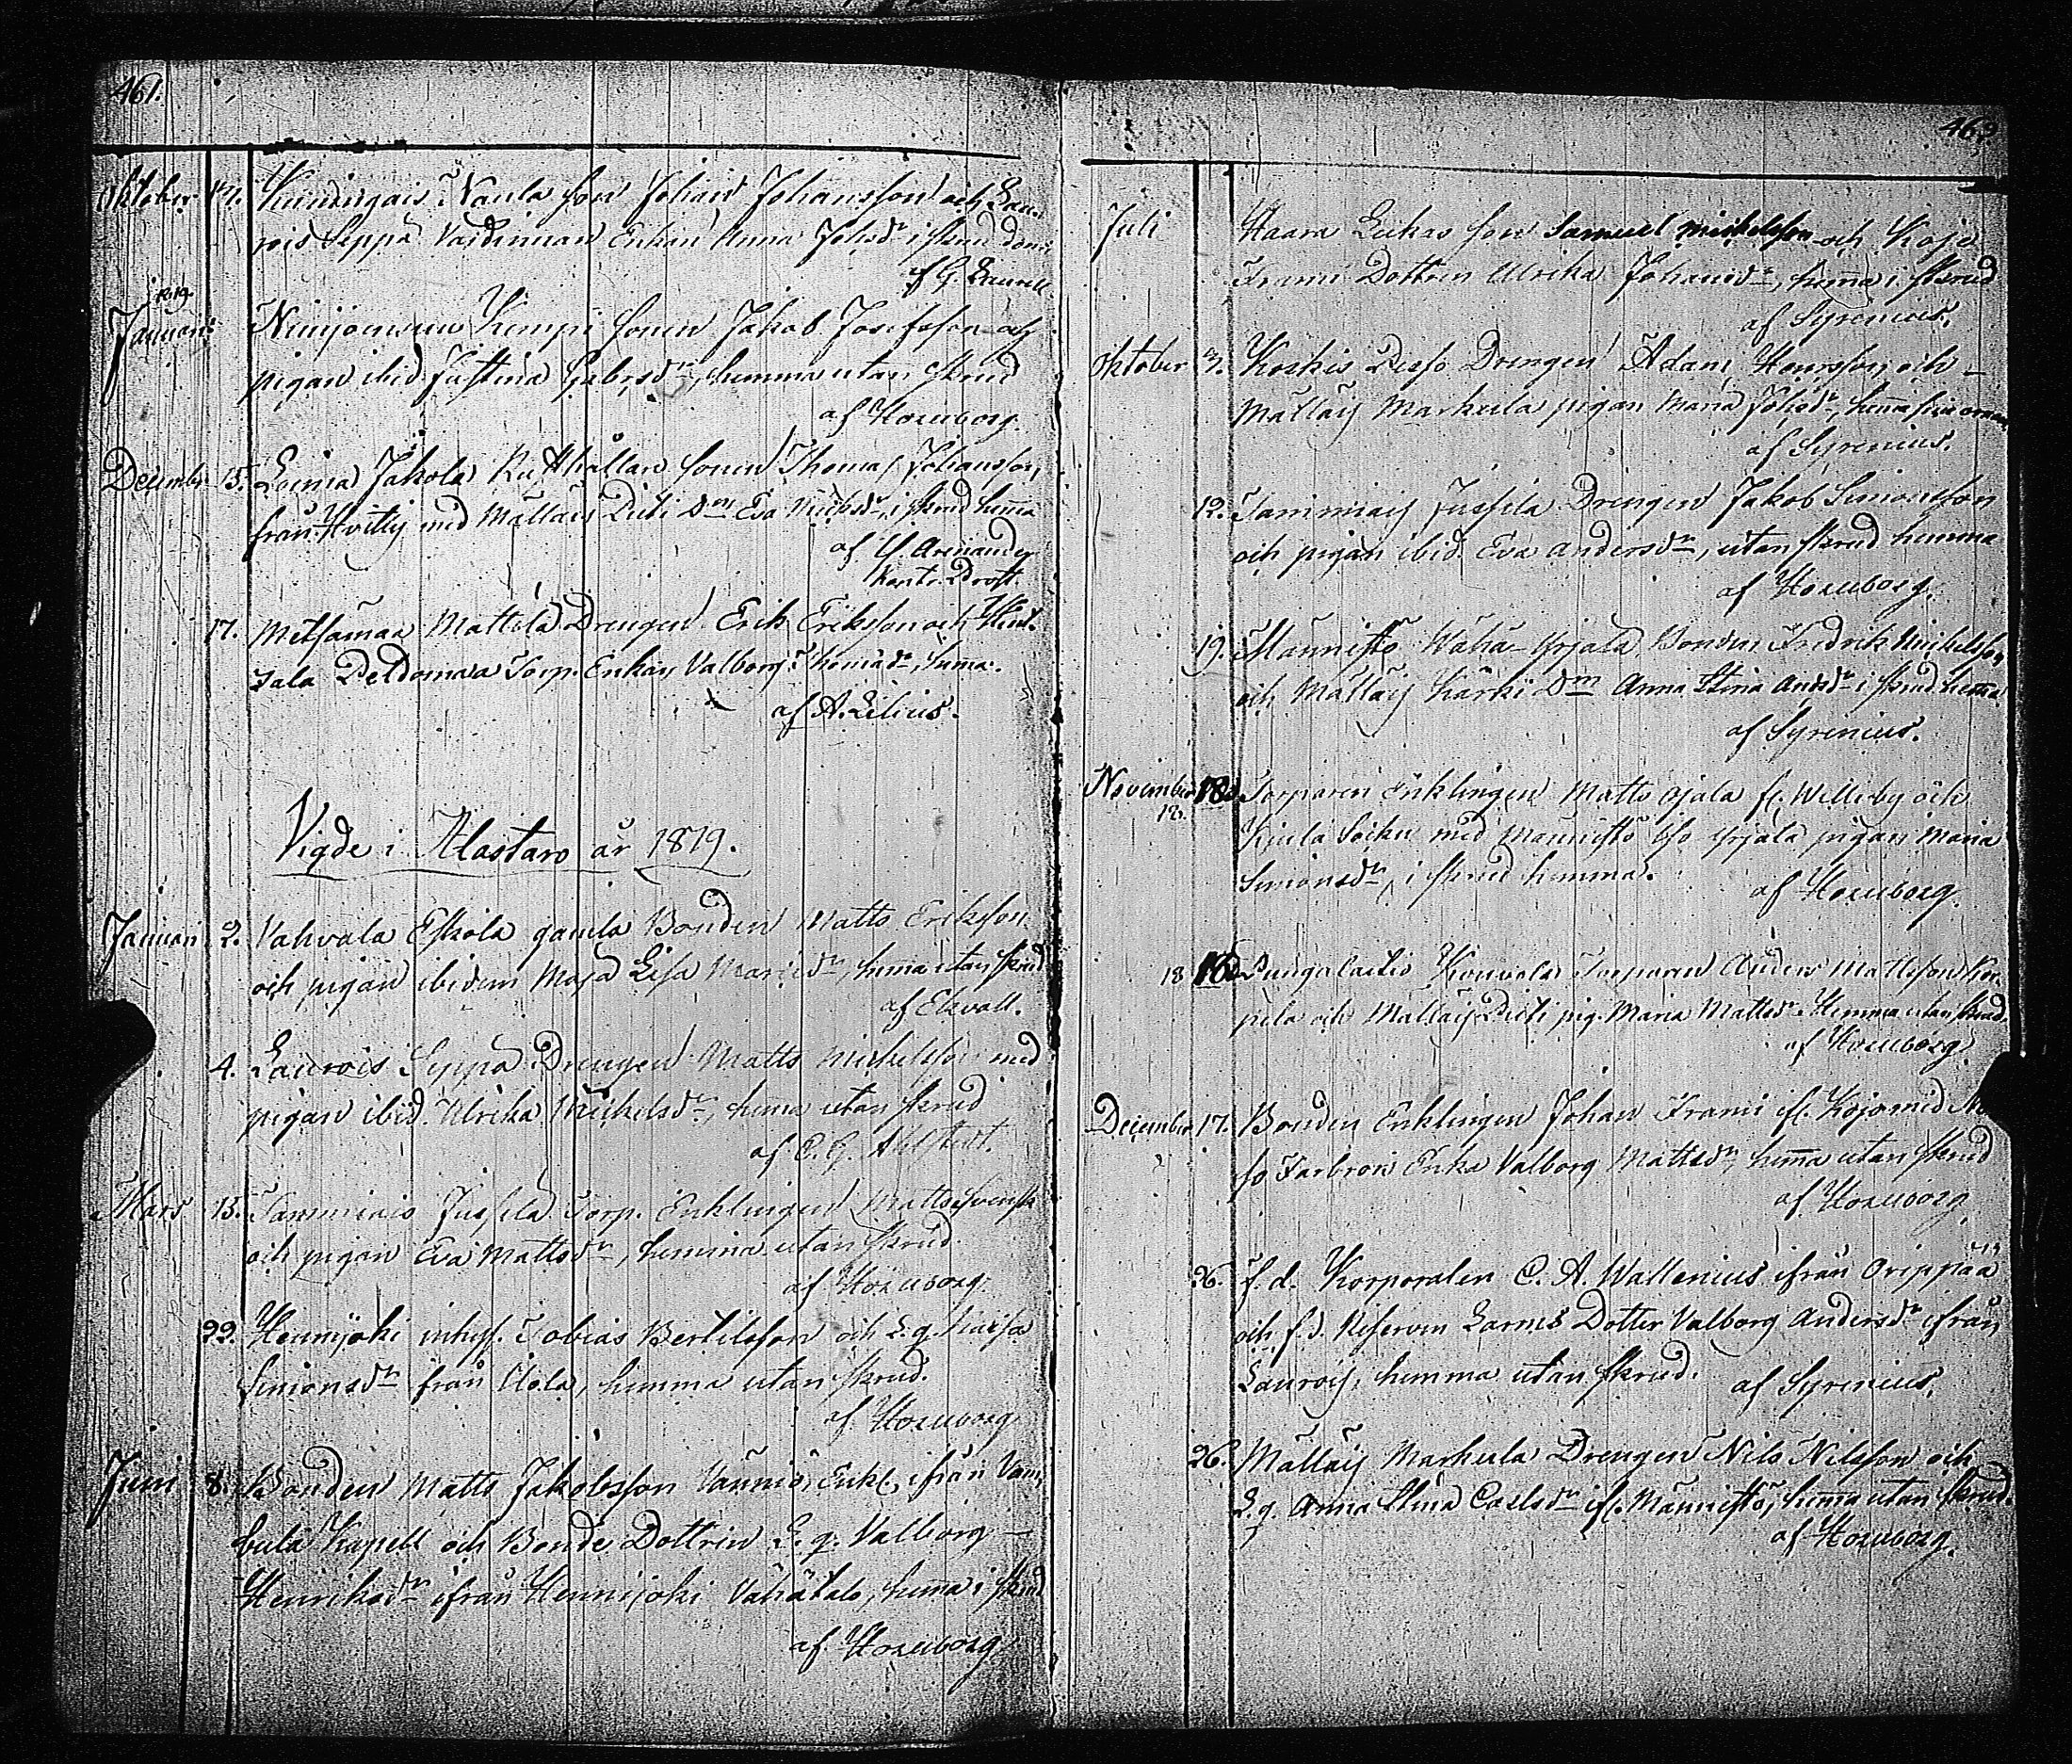 461.
Oktober
Naula son Johan Johansson och Lau-
rois Seppä Enkan Anna Johsdr i skrud
af G. Laurell
1819
Januari
Kempi sonen Jakob Josefsson och
pigan ibid. Justina Gabrsdr, hemma utan skrud
af Horuborg.
December 15. Loima Jakola Rusthållare sonen Thomas Johansson,
från med Mälläis Dm Eva Michsdr, i skrud hema
af
17. Metsämaa Mattila Drengen Erik Eriksson och
Torp. Enkan Valborg Thomasdr, hema.
af A. Lilius.
Vigde i Alastaro år 1819.
Januari 2. Vahvala Eskola gamla Bonden Matts Eriksson
och pigan ibidem Maja Lisa hema utan skrud
af Ekvall.
4. Laurois Seppä Drengen Matts Mickelsson med
pigan ibid. Ulrika Mickelsdr, hema utan skrud
af C. G. Ahlstedt.
Mars 15. Tammiais Jussila Torp. Enklingen Matts
och pigan Eva Mattsdr, hemma utan skrud
af Horuborg.
22. Hennijoki inhys. Tobias Bertilsson och L. q. Kaisa
Simonsdr från hemma utan skrud.
af Horuborg
Juni 8. Bonden Matts Jakobsson Vannio, Enkl. ifrån Vam-
bula Kapell och Bonde Dottren L. q. Valborg
Henriksdr ifrån Hennijoki Vähätalo, hema i skrud
af Horuborg
463
Juli Haara Lukas son Samuel Mickelsson och Kojo
Frami Dottren Ulrika Johansdr, hema i skrud
af Syrenius.
Oktober 7. Koskis Drengen Adam Henrsson och
Mälläis Markula pigan Maria Johsdr, hema
af Syrenius.
12. Tammiais Jussila Drengen Jakob Simonsson
och pigan ibid. Eva Andersdr, utan skrud hemma
af Horuborg.
19. Männistö Wähä-Yrjälä Bonden Fredrik Mickelsson
och Mälläis Kärki Dm Anna Stina Andsdr i skrud hema
af Syrenius.
November 18. Torparen Enklingen Matts Ojala fr. Willuby och
12.
Kjula Sockn med Männistö Iso Yrjälä pigan Maria
Simonsdr, i skrud hemma.
af Horuborg
18 Kouvola Torparen Anders Mattsson Kor-
pela och Mälläis pig. Maria Mattsdr Hemma utan skrud.
af Horuborg.
December 17. Bonden Enklingen Johan Frami ifr. Kojo med
so Farbron Enka Valborg Mattsdr, hema utan skrud
af Horuborg
26. f. d. Korporalen C. A. Wallenius ifrån Oripää
och f. d. Dotter Valborg Andersdr ifrån
Laurois, hemma utan skrud. af Syrenius.
26. Mälläis Markula Drengen Nils Nilsson och
L. q. Anna Stina Carlsdr ifr. Männistö, hema utan skrud.
af Horuborg.